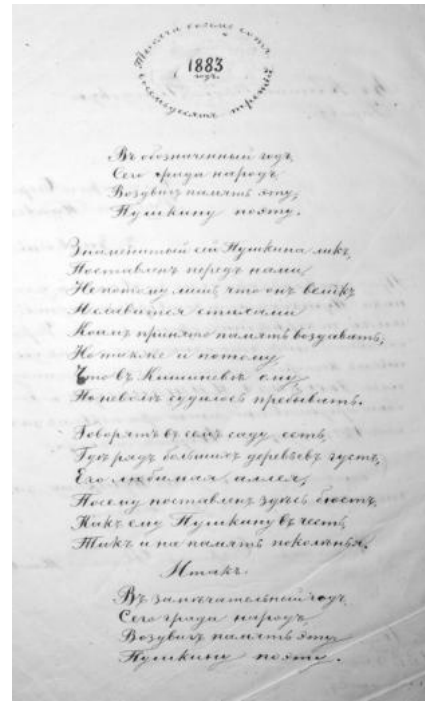 Тысяча восемь сотъ
восемьдесятъ третій
1883
годъ.
Въ обозначенный годъ
Сего града народъ
Воздвигъ память эту,
Пушкину поэту.
Знаменитый сей Пушкина ликъ,
Поставленъ передъ нами
Не потому лишь, что онъ великъ
И славится стихами
Коимъ принято память воздавать,
Но также и потому,
Что въ Кишиневѣ ему
По неволѣ судилось пребывать.
Говорятъ въ семъ саду есть,
Гдѣ рядъ большихъ деревьевъ густъ,
Его любимая аллея,
Посему поставленъ здѣсь бюстъ,
Какъ ему Пушкину въ честь,
Такъ и на память поколѣнья.
Итакъ.
Въ замѣчательный годъ
Сего града народъ
Воздвигъ память эту
Пушкину поэту.